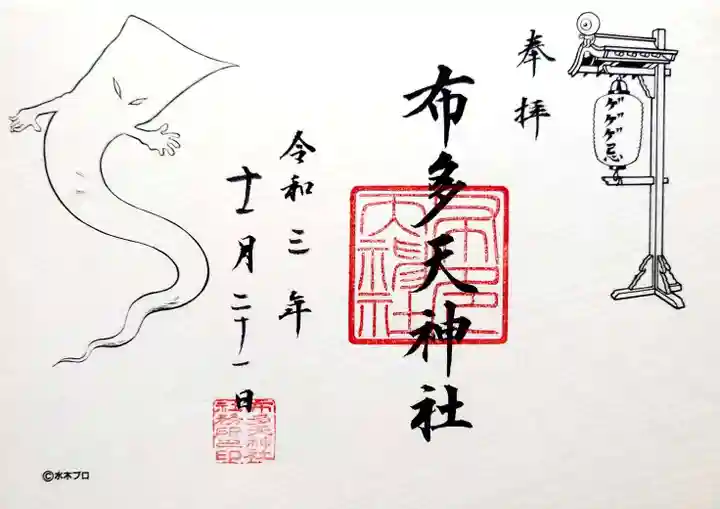 奉拝
ゲゲゲ忌
布多天神社
布多天神社
令和三年
十一月二十一日
布多天神社
社務所之印
©水木プロ